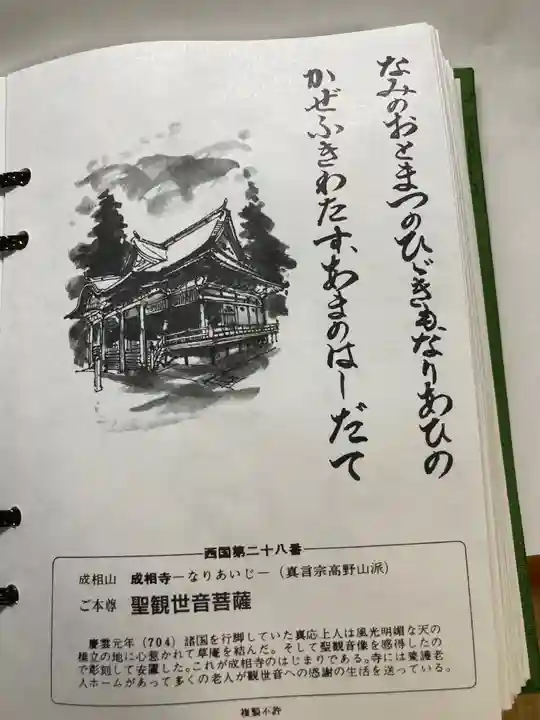 なみのおとまつのひゞきもなりあひの
かぜふきわたすあまのはしだて
西国第二十八番
成相山 成相寺―なりあいじ―(真言宗高野山派)
ご本尊 聖観世音菩薩
慶雲元年(704)諸国を行脚していた真応上人は風光明媚な天の
橋立の地に心惹かれて草庵を結んだ。そして聖観音像を感得したの
で彫刻して安置した。これが成相寺のはじまりである。寺には養護老
人ホームがあって多くの老人が観世音への感謝の生活を送っている。
複製不許